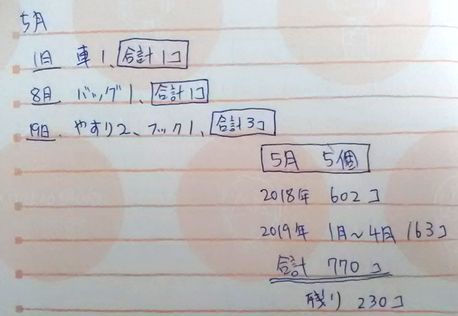 5月
1日 車1、合計1コ
8月 バッグ1、合計1コ
19日、やすり2、フック1、合計3コ
5月 5個
2018年 602コ
2019年 1月~4月 163コ
合計 770コ
残り 230コ